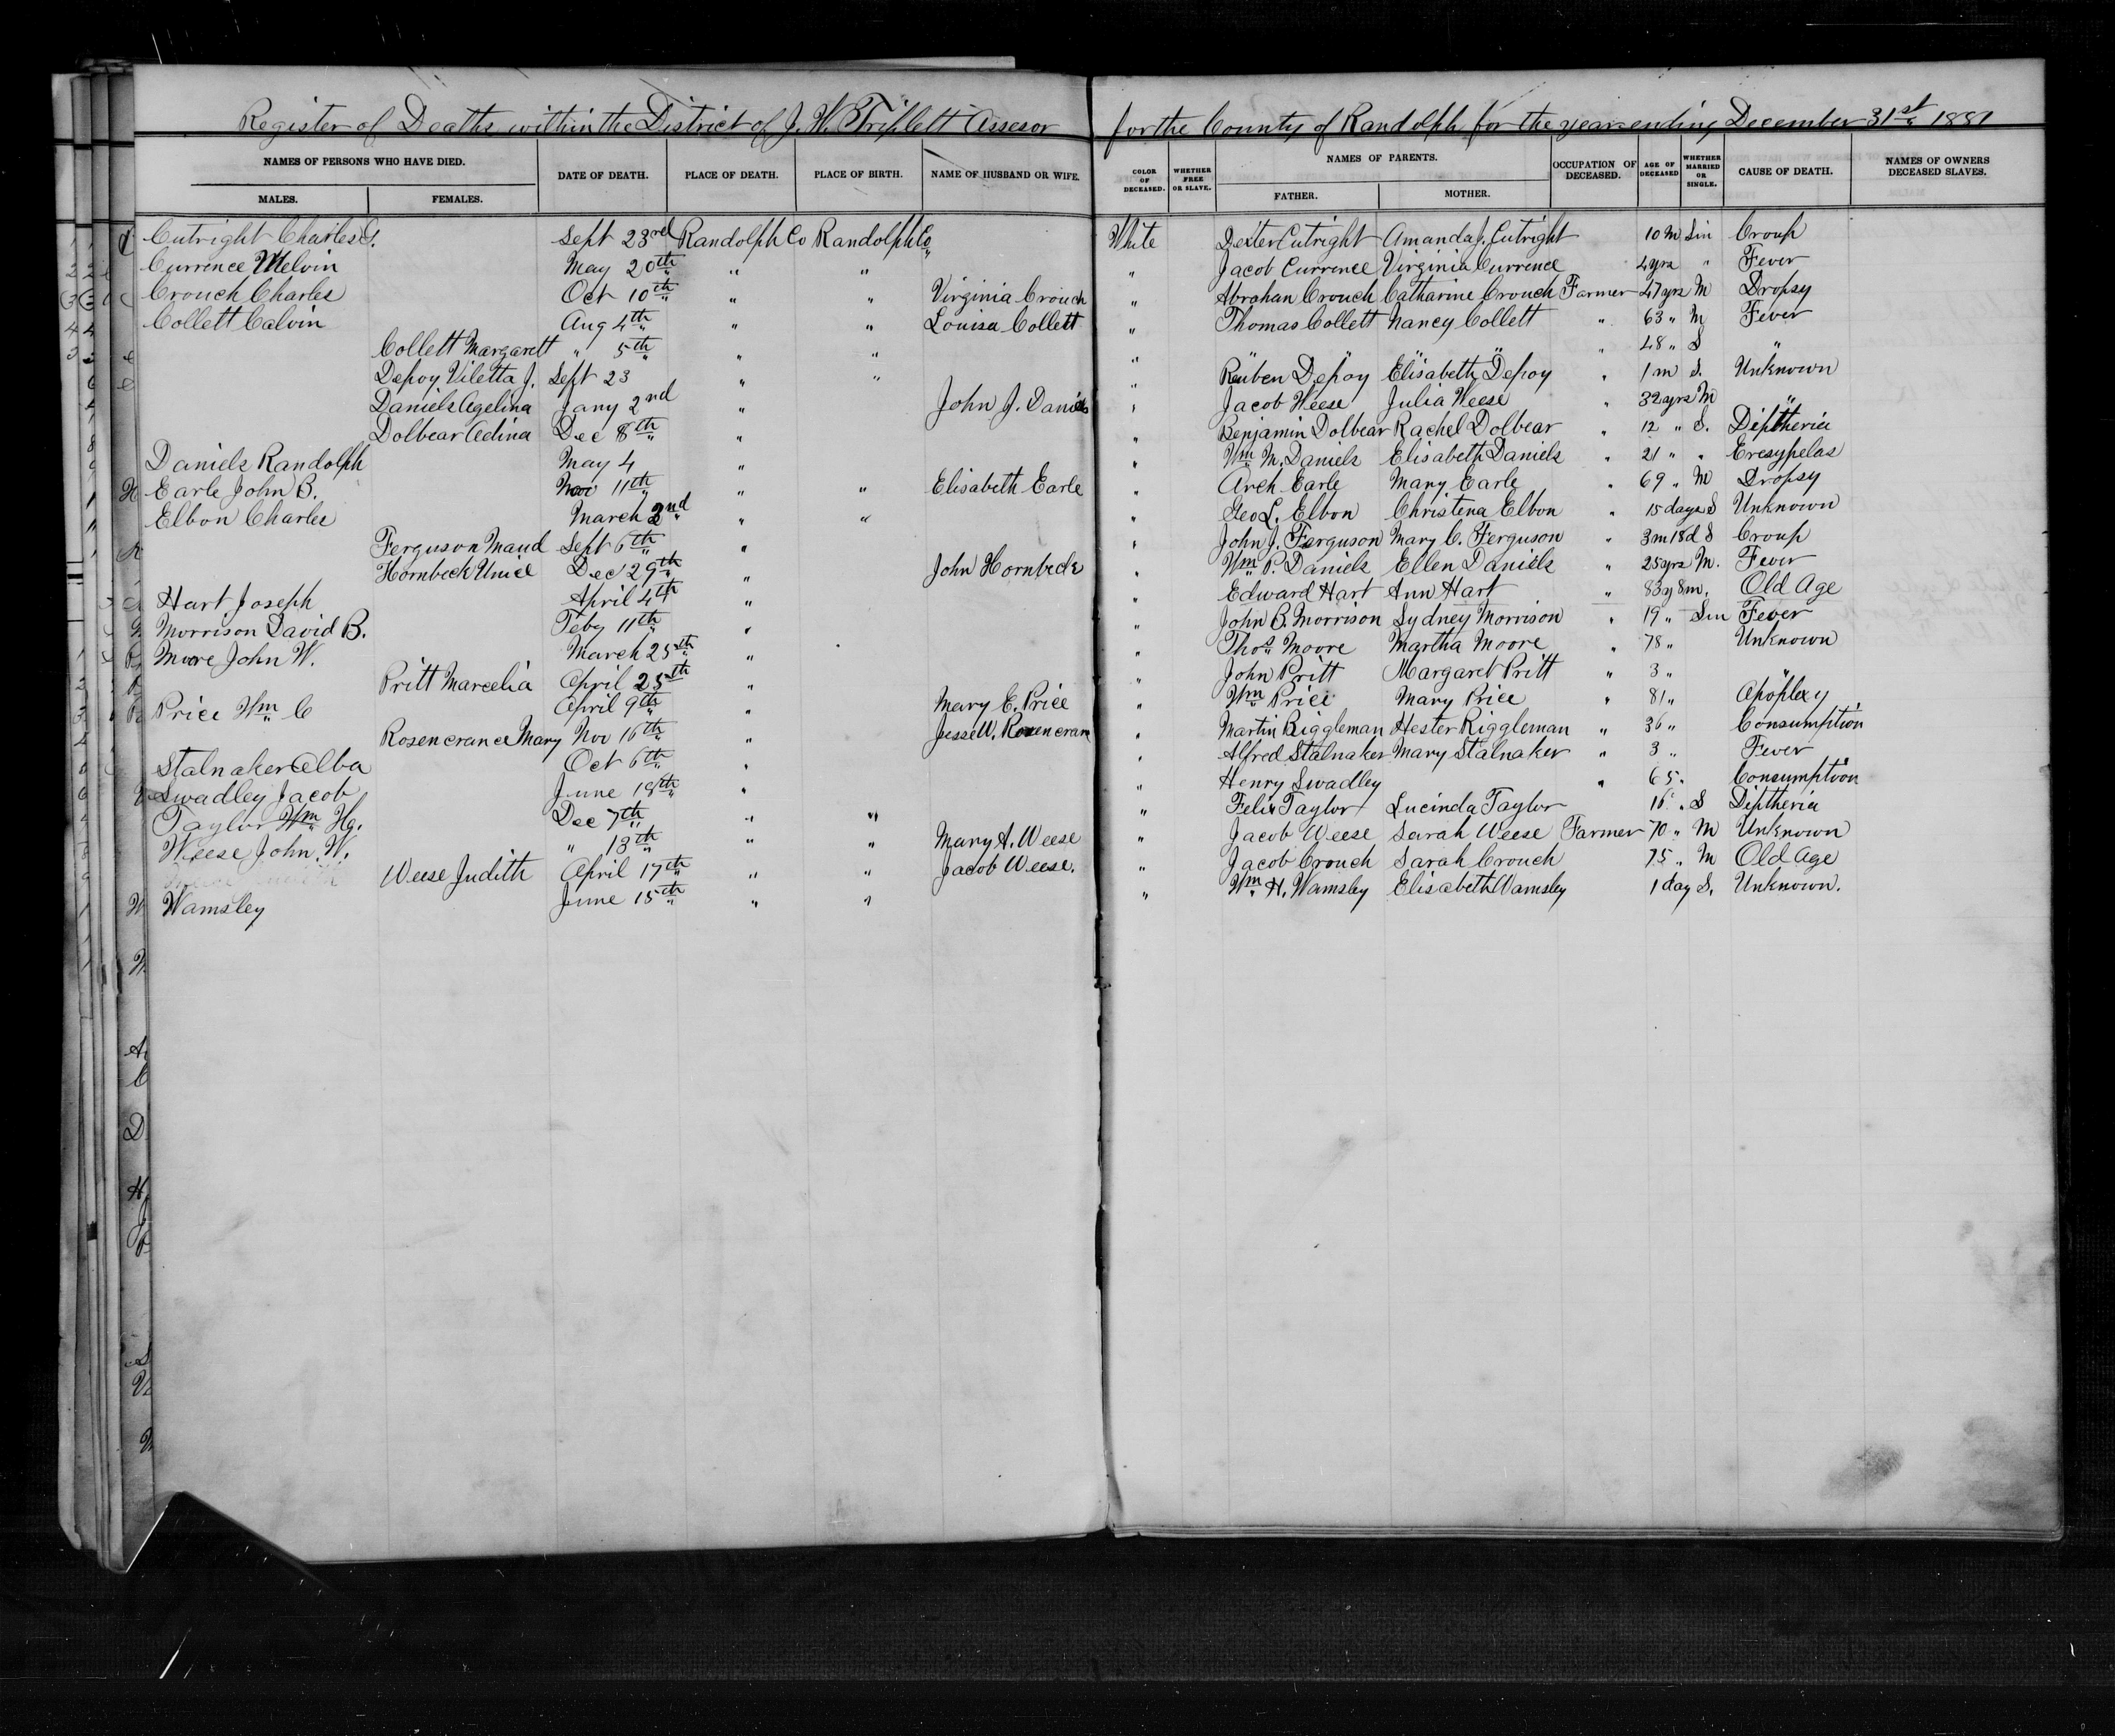 Register of Deaths within the District of J. W. Triplett Assesor for the County of Randolph for the year ending December 31st 1881
NAMES OF PERSONS WHO HAVE DIED. DATE OF DEATH. PLACE OF DEATH. PLACE OF BIRTH. NAME OF HUSBAND OR WIFE. COLOR OF DECEASED. WHETHER FREE OR SLAVE. NAMES OF PARENTS. OCCUPATION OF DECEASED. AGE OF DECEASED WHETHER MARRIED OR SINGLE. CAUSE OF DEATH. NAMES OF OWNERS DECEASED SLAVES.
MALES. FEMALES. FATHER. MOTHER.
Cutright Charles G. Sept 23rd Randolph Co Randolph Co White Dexter Cutright Amanda J. Cutright 10 m Sin Croup
Currence Melvin May 20th " " " Jacob Currence Virginia Currence 4 yrs " Fever
Crouch Charles Oct 10th " " Virginia Crouch " Abrahan Crouch Catharine Crouch Farmer 47 yrs M Dropsy
Collett Calvin Aug 4th " " Louisa Collett " Thomas Collett Nancy Collett " 63 " M Fever
Collett Margarett " 5th " " " " " " 48 " S "
Depoy Viletta J. Sept 23 " " " Reuben Depoy Elisabeth Depoy " 1 m S. Unknown
Daniels Agelina Jany 2nd " John J. Daniels " Jacob Weese Julia Weese " 32 yrs M "
Dolbear Adina Dec 8th " " Benjamin Dolbear Rachel Dolbear " 12 " S. Diptheria
Daniels Randolph May 4 " " Wm M. Daniels Elisabeth Daniels " 21 " " Eresypelas
Earle John B. Nov 11th " " Elisabeth Earle " Arch Earle Mary Earle " 69 " M Dropsy
Elbon Charles March 2nd " " " Geo L. Elbon Christena Elbon " 15 days S Unknown
Ferguson Maud Sept 6th " " John J. Ferguson Mary C. Ferguson " 3 m 18 d S Croup
Hornbeck Dec 29th " John Hornbeck " Wm P. Daniels Ellen Daniels " 25 yrs M. Fever
Hart Joseph April 4th " " Edward Hart Ann Hart " 83 y 8 m. Old Age
Morrison David B. Feby 11th " " John B. Morrison Sydney Morrison " 19 " Sin Fever
Moore John W. March 25th " " Thos Moore Martha Moore " 78 " Unknown
Pritt Marcelia April 25th " " John Pritt Margaret Pritt " 3 " "
Price Wm C April 9th " Mary E. Price " Wm Price Mary Price " 81 " Apoplexy
Rosencrance Mary Nov 16th " Jesse W. Rosencrance " Martin Riggleman Hester Riggleman " 36 " Consumption
Stalnaker Alba Oct 6th " " Alfred Stalnaker Mary Stalnaker " 3 " Fever
Swadley Jacob June 18th " " Henry Swadley " 65 " Consumption
Taylor Wm Hg. Dec 7th " " " Felix Taylor Lucinda Taylor 16 " S Diptheria
Weese John W. " 13th " " Mary A. Weese " Jacob Weese Sarah Weese Farmer 70 " M Unknown
Weese Judith April 17th " " Jacob Weese. " Jacob Crouch Sarah Crouch 75 " M Old Age
Wamsley June 15th " " " Wm H. Wamsley Elisabeth Wamsley 1 day S. Unknown.